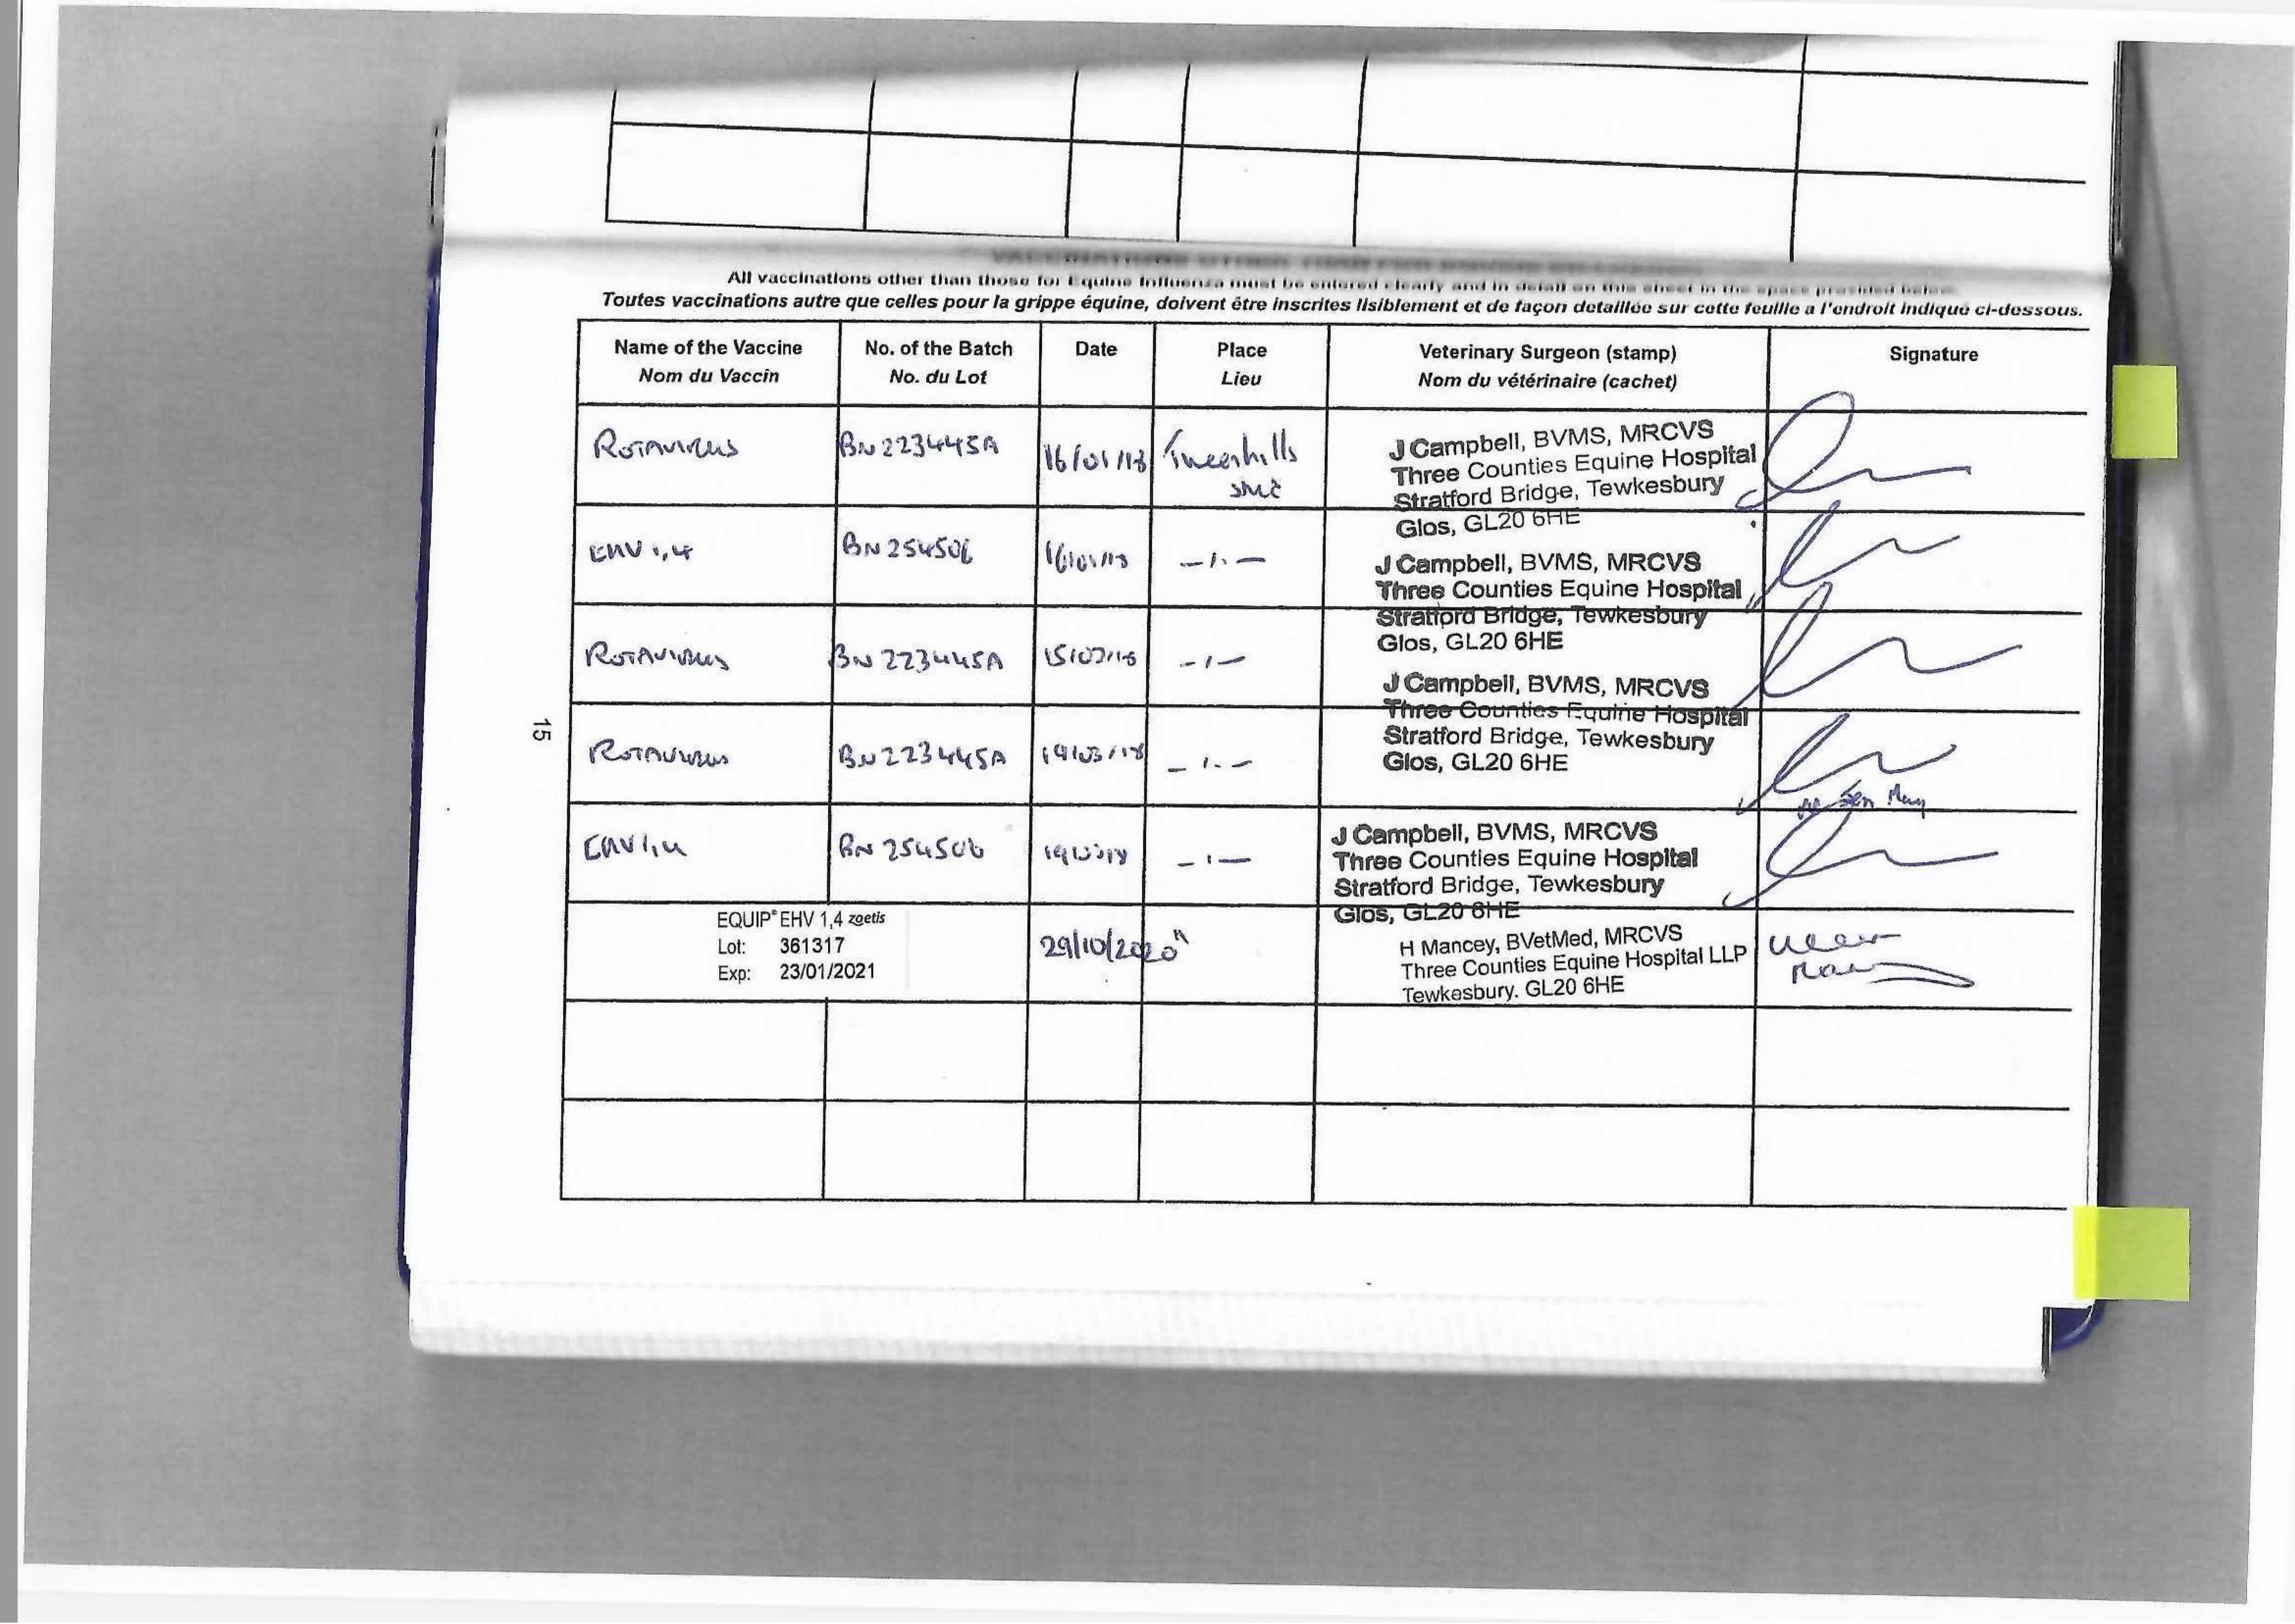 All vaccinations other than those for Equine Influenza must be entered clearly and in detail on this sheet in the space provided below.
Toutes vaccinations autre que celles pour la grippe équine, doivent être inscrites lisiblement et de façon detaillée sur cette feuille a l'endroit indiqué ci-dessous.
Name of the Vaccine
Nom du Vaccin
No. of the Batch
No. du Lot
Date
Place
Lieu
Veterinary Surgeon (stamp)
Nom du vétérinaire (cachet)
Signature
ROTAVIRUS
BN223445A
16/01/18
Tweenhills
J Campbell, BVMS, MRCVS
Three Counties Equine Hospital
Stratford Bridge, Tewkesbury
Glos, GL20 6HE
EHV 1,4
BN254506
16/01/18
J Campbell, BVMS, MRCVS
Three Counties Equine Hospital
Stratford Bridge, Tewkesbury
Glos, GL20 6HE
ROTAVIRUS
BN223445A
15/02/18
J Campbell, BVMS, MRCVS
Three Counties Equine Hospital
Stratford Bridge, Tewkesbury
Glos, GL20 6HE
ROTAVIRUS
BN223445A
19/03/18
EHV 1,4
BN254506
J Campbell, BVMS, MRCVS
Three Counties Equine Hospital
Stratford Bridge, Tewkesbury
Glos, GL20 6HE
EQUIP® EHV 1,4 zoetis
Lot: 361317
Exp: 23/01/2021
29/10/2020
H Mancey, BVetMed, MRCVS
Three Counties Equine Hospital LLP
Tewkesbury. GL20 6HE
15